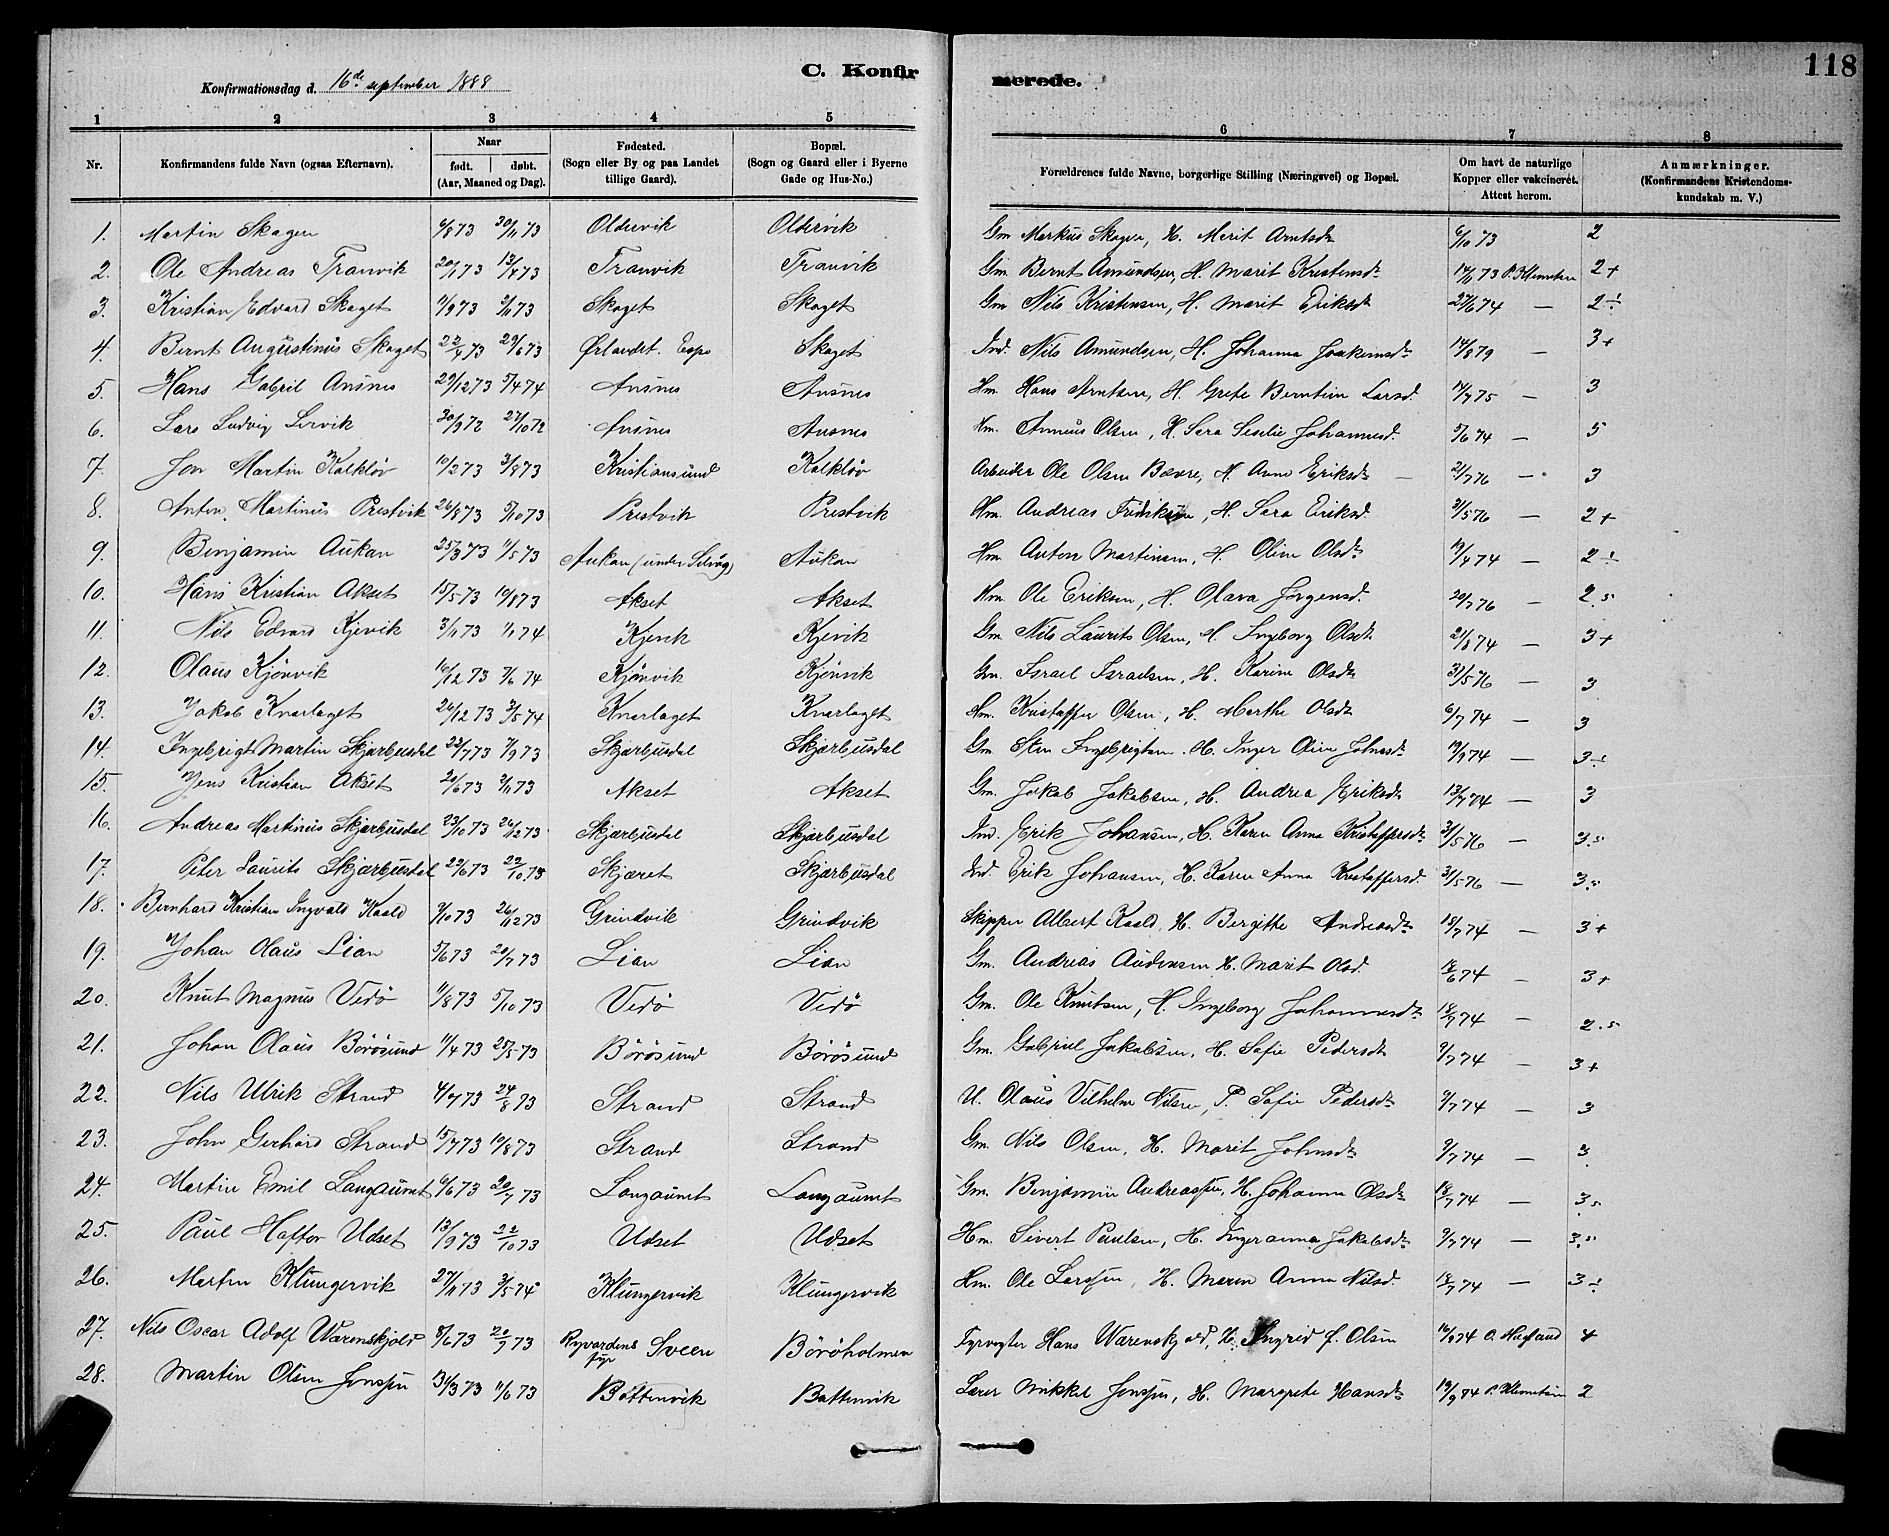 118
C. Konfirmerede.
Konfirmationsdag d. 16de september 1888
1 2 3 4 5 6 7 8
Nr. Konfirmandens fulde Navn (ogsaa Efternavn). Naar født. døbt. (Aar, Maaned og Dag). Fødested. (Sogn eller By og paa Landet tillige Gaard). Bopæl. (Sogn og Gaard eller i Byerne Gade og Hus-No.) Forældrenes fulde Navne, borgerlige Stilling (Næringsvei) og Bopæl. Om havt de naturlige Kopper eller vakcineret. Attest herom. Anmærkninger. (Konfirmandens Kristendomskundskab m. V.)
1. Martin Skagen 6/8 73 30/11 73 Oldervik Oldervik Gm Markus Skagen, H. Merit Arntsdr 6/10 73 2
2. Ole Andreas Tranvik 20/1 73 13/4 73 Tranvik Tranvik Gm. Bernt Amundsen, H. Marit Kristensdr 14/11 73 2+
3. Kristian Edvard Skaget 11/9 73 2/11 73 Skaget Skaget Gm Nils Kristensen, H. Marit Eriksdr 27/6 74 — 2÷
4. Bernt Augustinus Skaget 22/4 73 29/6 73 Ørlandet. Skaget Ind. Nils Amundsen, H. Johanna Joakimsdr 14/8 79 — 3+
5. Hans Gabril Ansnes 29/12 73 5/4 74 Ansnes Ansnes Hm. Hans Arntsen, H. Grete Berntine Larsd. 14/7 75 — 3
6. Lars Ludvig 30/9 72 27/10 72 Ansnes Ansnes Hm. Olsen, H. Sara Seselie Johannesd. 5/6 74 — 5
7. Jon Martin Kalkløv 10/2 73 3/8 73 Kristiansund Kalkløv Arbeider Ole Olsen Bævre, H. Anne Eriksdr 21/7 76 — 3
8. Anton Martinus Prestvik 26/8 73 5/10 73 Prestvik Prestvik Hm. Andreas Fredriksen, H. Sara Eriksd. 31/5 76 — 2+
9. Benjamin Aukan 25/3 73 11/5 73 Aukan (under Selvåg) Aukan Hm. Anton Martinsen, H. Oline Olsdr 19/4 74 — 2÷
10. Hans Kristian Akset 15/5 73 10/8 73 Akset Akset Hm. Ole Eriksen, H. Olava Jørgensd. 20/7 76 — 2.5
11. Nils Edvard Kjevik 3/11 73 1/1 74 Kjevik Kjevik Gm. Nils Laurits Olsen, H. Ingeborg Olsdr 21/8 74 — 3+
12. Olaus Kjønvik 10/12 73 7/6 74 Kjønvik Kjønvik Gm. Israel Israelsen, H. Karine Olsdr 31/5 76 — 3
13. Jakob Knarlaget 26/12 73 3/5 74 Knarlaget Knarlaget Hm. Kristoffer Olsen, H. Marthe Olsdr 6/7 74 — 3
14. Ingebrigt Martin Skjærbusdal 23/7 73 7/9 73 Skjærbusdal Skjærbusdal Gm Sten Ingebrigtsen. H. Inger Oline Johnsdr 19/9 74 — 3÷
15. Jens Kristian Akset 20/6 73 2/11 73 Akset Akset Gm. Jakob Jakobsen, H. Andrea Eriksdr 13/7 74 — 3
16. Andreas Martinus Skjærbusdal 23/10 73 26/12 73 Skjærbusdal Skjærbusdal Ind. Erik Johansen, H. Karen Anna Kristoffersdr 31/5 76 — 3.5
17. Peter Laurits Skjærbusdal 22/6 73 22/10 73 Skjæret Skjærbusdal Ind. Erik Johansen, H. Karen Anna Kristoffersd. 31/5 76 — 3.5
18. Bernhard Kristian Ingvald Kaald 7/10 73 26/12 73 Grindvik Grindvik Skipper Albert Kaald, H. Bergitte Andreasdr 18/7 74 — 3+
19. Johan Olaus Lian 5/6 73 20/7 73 Lian Lian Gm. Andreas Audensen H. Marit Olsd. 18/6 74 — 3+
20. Knut Magnus Vedø 11/8 73 5/10 73 Vedø Vedø Gm. Ole Knutsen, H. Ingeborg Johannesdr 18/7 74 — 2.5
21. Johan Olaus Børøsund 11/4 73 25/5 73 Børøsund Børøsund Gm. Gabriel Jakobsen, H. Sofie Pedersdr 9/7 74 — 3+
22. Nils Ulrik Strand 4/7 73 24/8 73 Strand Strand U. Olaus Vilhelm Nilsen, P. Sofie Pedersdr 9/7 74 — 3
23. John Gerhard Strand 15/7 73 10/8 73 Strand Strand Gm. Nils Olsen, H. Marit Johnsdr 9/7 74 — 3
24. Martin Emil Langaunet 6/6 73 20/7 73 Langaunet Langaunet Gm. Benjamin Andreassen, H. Johanna Olsdr 18/7 74 — 3.5
25. Paul Haftor Udset 13/9 73 22/10 73 Udset Udset Hm. Sivert Paulsen, H. Ingeranna Jakobsdr 9/7 74 — 3.5
26. Martin Klungervik 27/11 73 3/5 74 Klungervik Klungervik Hm. Ole Larssen, H. Maren Anna Nilsd. 18/7 74 — 3÷
27. Nils Oscar Adolf Warenskjold 8/6 73 20/7 73 Ryvardens fyr Sveen Børøholmen Fyrvogter Hans Warenskjold, H. Ingrid f. Olsen 16/9 74 4
28. Martin Olsen Jonssen 31/3 73 11/6 73 Bottenvik Battenvik Lærer Mikkel Jonssen, H. Margrete Hansdr 19/9 74 2